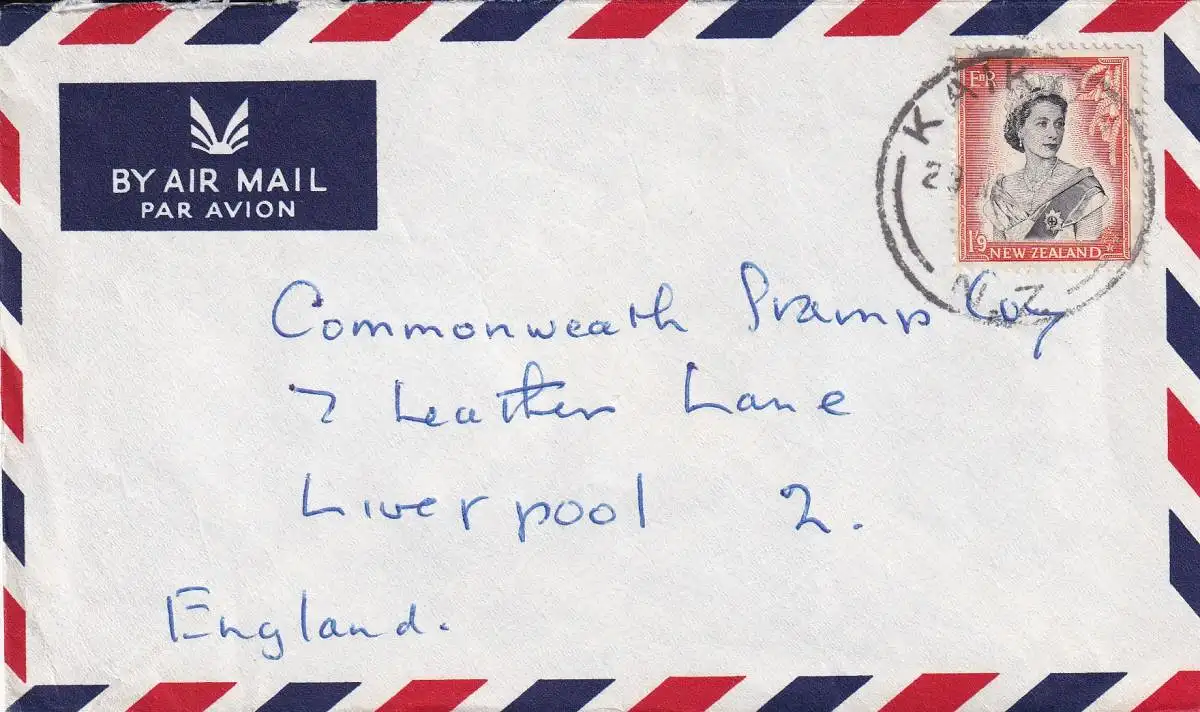 BY AIR MAIL
PAR AVION
EIIR
1/9 NEW ZEALAND
N.Z
Commonweath Stamp Coy
7 Leather Lane
Liverpool 2.
England.